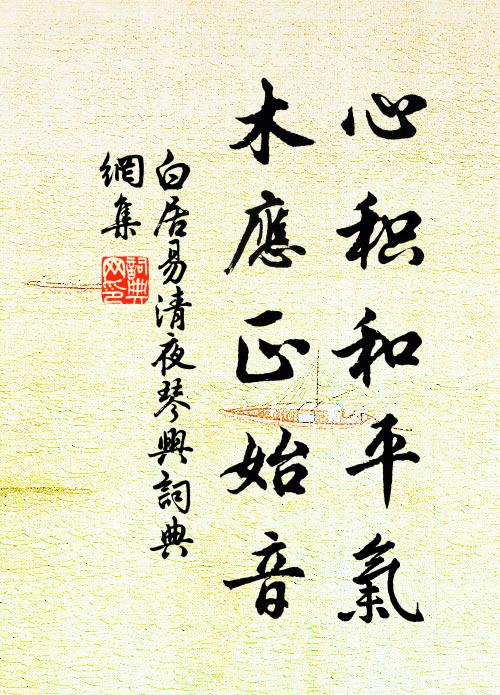 心积和平氣
木應正始音
白居易清夜琴興詞典
網集
詞典網印